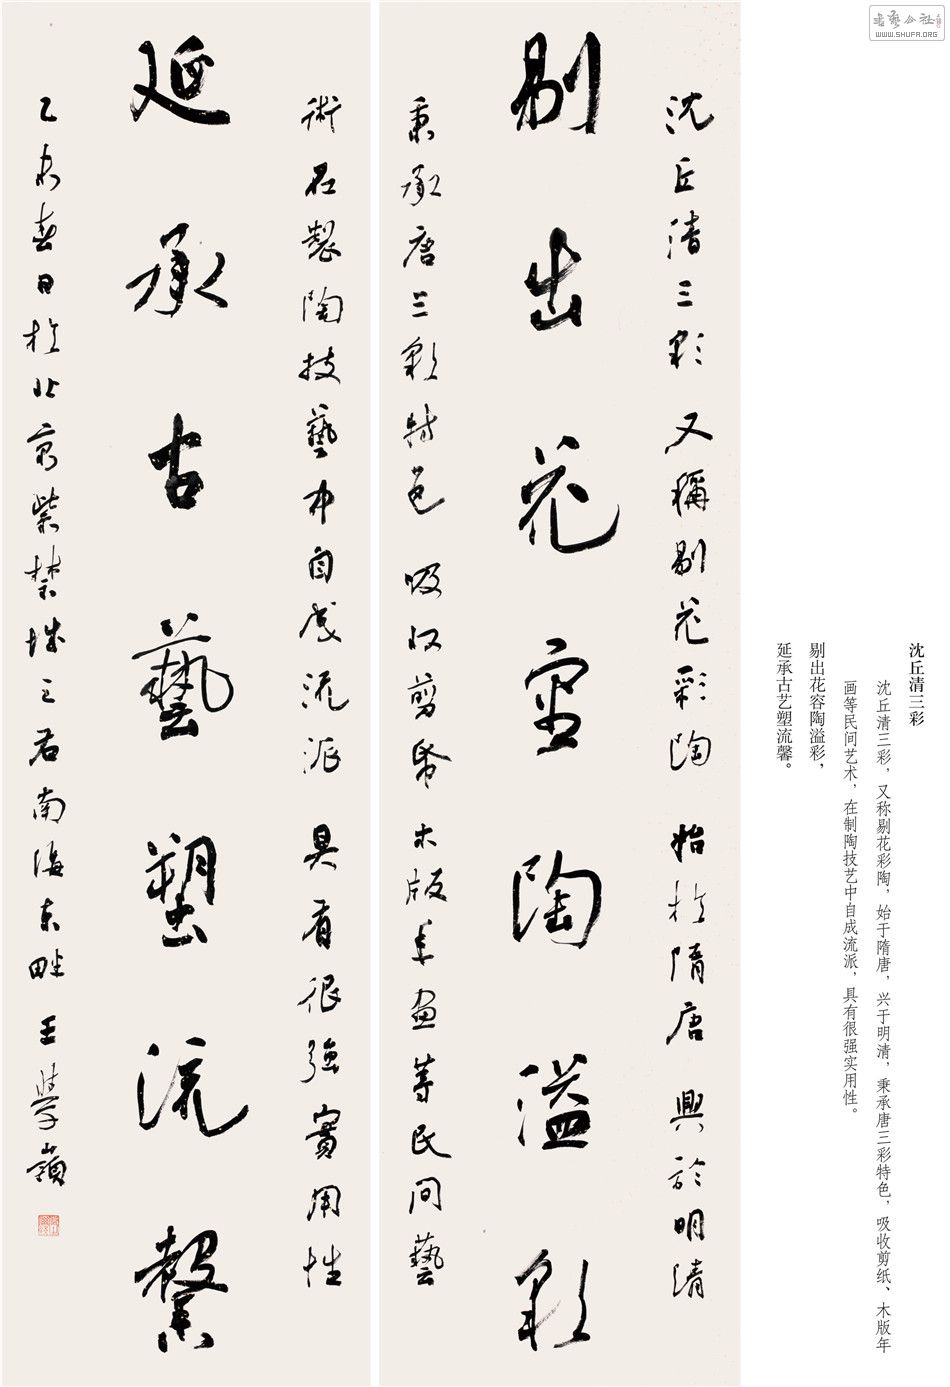 書藝公社
WWW.SHUFA.ORG
沈丘清三彩
沈丘清三彩，又称剔花彩陶，始于隋唐，兴于明清，秉承唐三彩特色，吸收剪纸、木版年
画等民间艺术，在制陶技艺中自成流派，具有很强实用性。
剔出花容陶溢彩，
延承古艺塑流馨。
沈丘清三彩又稱剔花彩陶始於隋唐興於明清
剔出花容陶溢彩
秉承唐三彩特色吸收剪紙木版年畫等民間藝
術在製陶技藝中自成流派具有很強實用性
延承古藝塑流馨
乙未春日於北京紫禁城之右南海東畔王學嶺